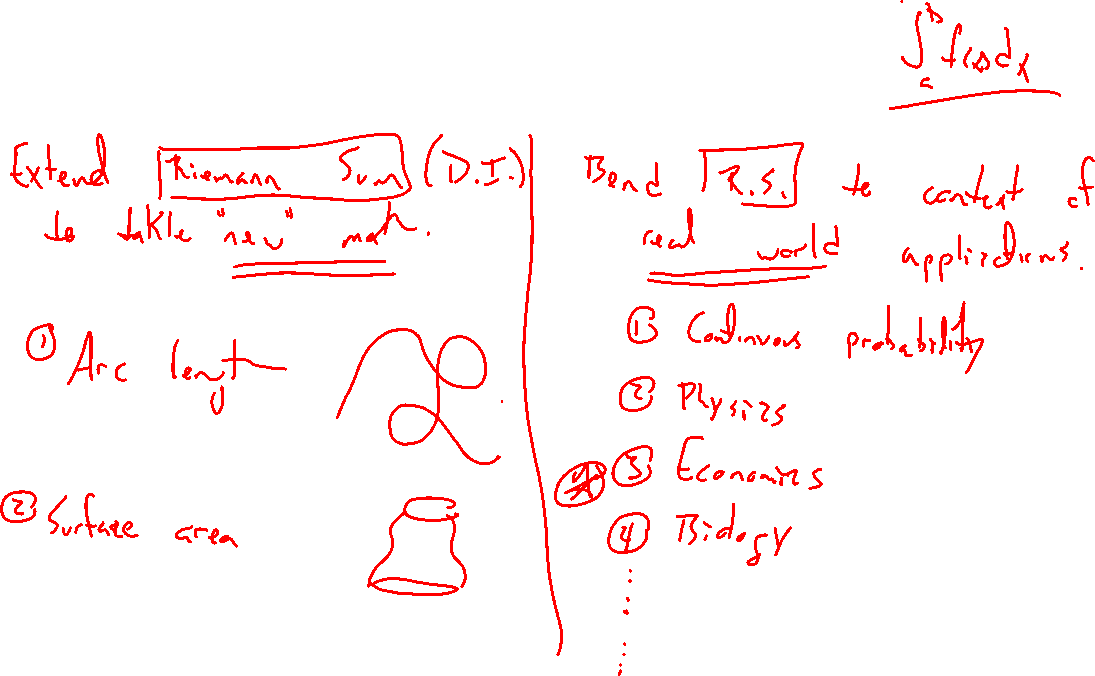 ∫_a^b f(x)dx
Extend Riemann Sum (D.I.)
to takle "new" math.
① Arc length
② Surface area
Bend R.S. to context of
real world applications.
① Continuous probability
② Physics
③ Economics
④ Biology